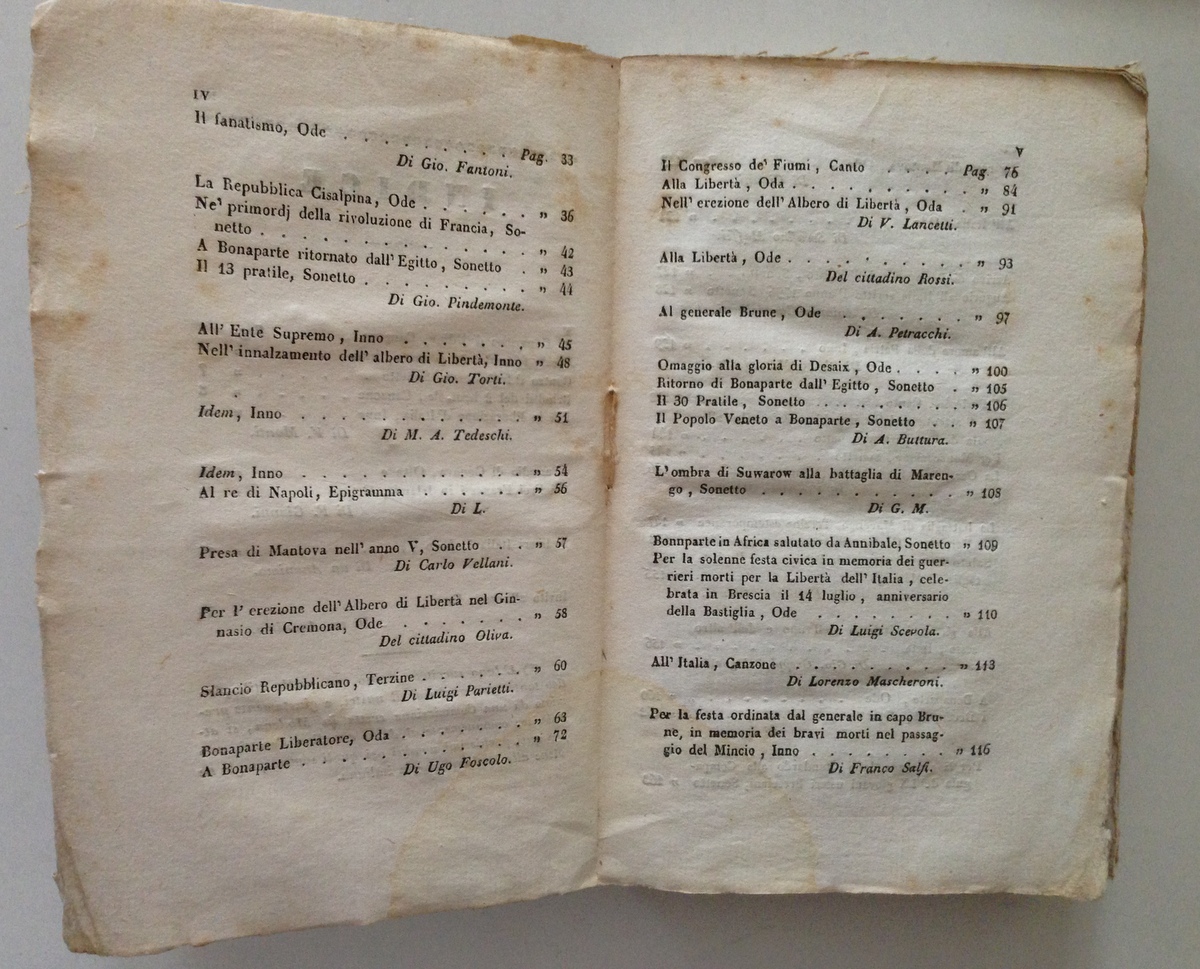 IV
Il fanatismo, Ode . . . . . . . . . Pag. 33
Di Gio. Fantoni.
La Repubblica Cisalpina, Ode . . . . . . " 36
Ne' primordj della rivoluzione di Francia, So-
netto . . . . . . . . . . . . . . " 42
A Bonaparte ritornato dall' Egitto, Sonetto . " 43
Il 13 pratile, Sonetto . . . . . . . . . " 44
Di Gio. Pindemonte.
All' Ente Supremo, Inno . . . . . . . " 45
Nell' innalzamento dell' albero di Libertà, Inno " 48
Di Gio. Torti.
Idem, Inno . . . . . . . . . . . . " 51
Di M. A. Tedeschi.
Idem, Inno . . . . . . . . . . . . " 54
Al re di Napoli, Epigramma . . . . . . " 56
Di L.
Presa di Mantova nell' anno V, Sonetto . . " 57
Di Carlo Vellani.
Per l' erezione dell' Albero di Libertà nel Gin-
nasio di Cremona, Ode . . . . . . . " 58
Del cittadino Oliva.
Slancio Repubblicano, Terzine . . . . . . " 60
Di Luigi Parietti.
Bonaparte Liberatore, Oda . . . . . . . " 63
A Bonaparte . . . . . . . . . . . " 72
Di Ugo Foscolo.
V
Il Congresso de' Fiumi, Canto . . . . Pag. 76
Alla Libertà, Oda . . . . . . . . . . " 84
Nell' erezione dell' Albero di Libertà, Oda . " 91
Di V. Lancetti.
Alla Libertà, Ode . . . . . . . . . . " 93
Del cittadino Rossi.
Al generale Brune, Ode . . . . . . . " 97
Di A. Petracchi.
Omaggio alla gloria di Desaix, Ode . . . . " 100
Ritorno di Bonaparte dall' Egitto, Sonetto . " 105
Il 30 Pratile, Sonetto . . . . . . . . . " 106
Il Popolo Veneto a Bonaparte, Sonetto . . " 107
Di A. Buttura.
L' ombra di Suwarow alla battaglia di Maren-
go, Sonetto . . . . . . . . . . . . " 108
Di G. M.
Bonnparte in Africa salutato da Annibale, Sonetto " 109
Per la solenne festa civica in memoria dei guer-
rieri morti per la Libertà dell' Italia, cele-
brata in Brescia il 14 luglio, anniversario
della Bastiglia, Ode . . . . . . . . " 110
Di Luigi Scevola.
All' Italia, Canzone . . . . . . . . . " 113
Di Lorenzo Mascheroni.
Per la festa ordinata dal generale in capo Bru-
ne, in memoria dei bravi morti nel passag-
gio del Mincio, Inno . . . . . . . . " 116
Di Franco Salfi.